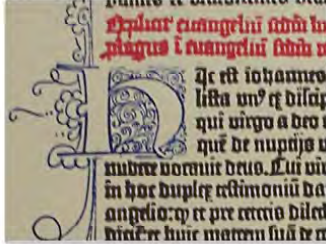 Explicit euangeliū scdm lu
plogus ī euangeliū scdm
Hic est iohannes
lista un⁹ ex disci
qui virgo a deo
quē de nuptijs
nubere vocauit deus. Cui vir
in hoc duplex testimoniū da
angelio: ꝙ et pre ceteris dilec
et huic matrem suā de